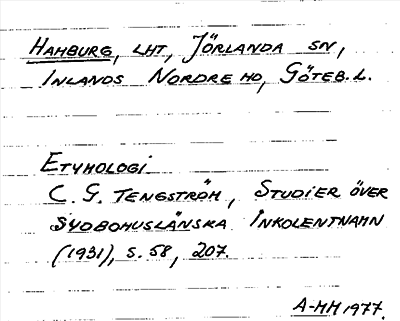 HAMBURG, LHT, JÖRLANDA SN,
INLANDS NORDRE HD, GÖTEB. L.
ETYMOLOGI
C. G. TENGSTRÖM, STUDIER ÖVER
SYDBOHUSLÄNSKA INKOLENTNAMN
(1931), S. 58, 207.
A-MH 1977.